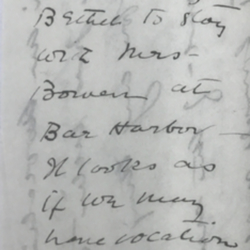 Bethel to stay
with Mrs-
Bowen at
Bar Harbor-
It looks as
if we may
have vocation